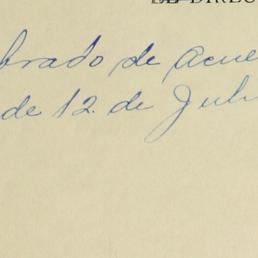 EL DIREC
brado de acue
de 12. de Juli